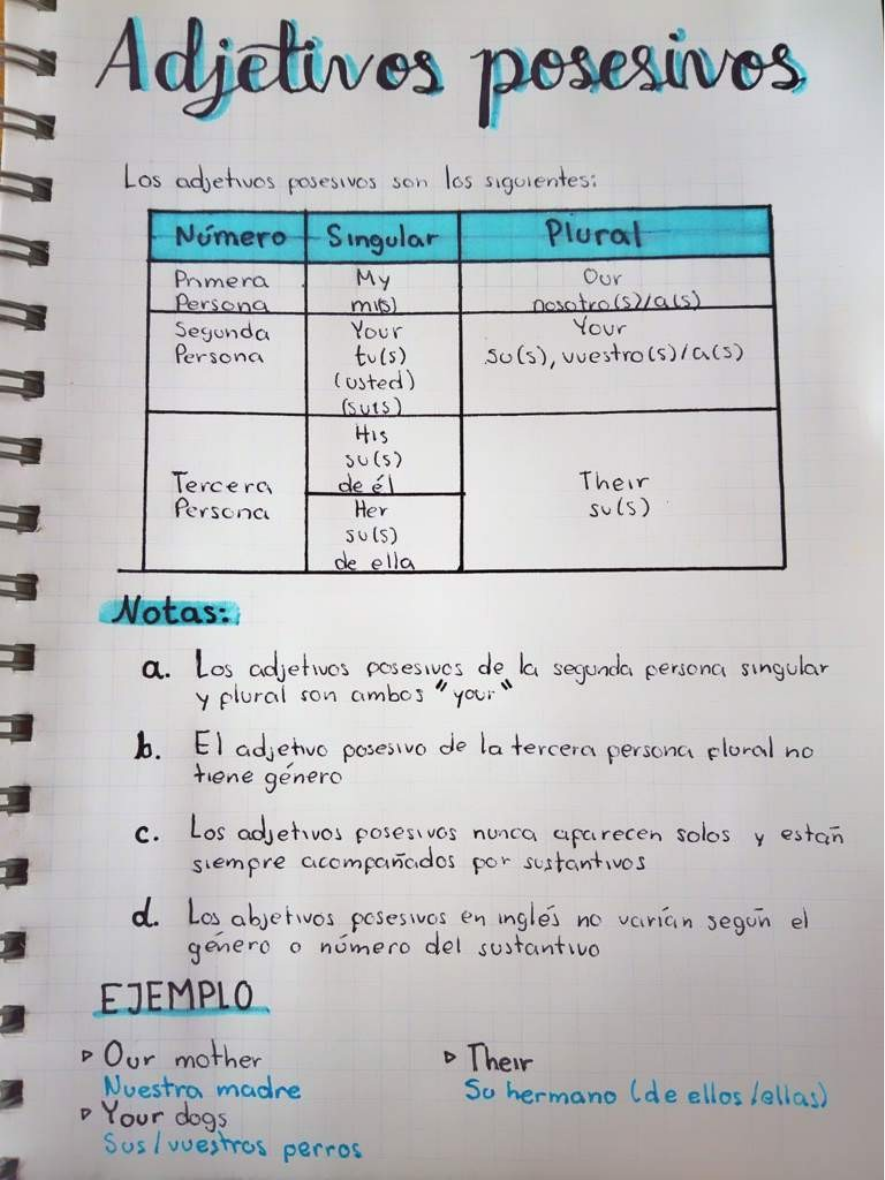 Adjetivos posesivos
Los adjetivos posesivos son los siguientes:
Número Singular Plural
Primera
Persona
My
mi(s)
Our
nosotro(s)/a(s)
Segunda
Persona
Your
tu(s)
(usted)
(su(s)
Your
su(s), vuestro(s)/a(s)
Tercera
Persona
His
su(s)
de él
Her
su(s)
de ella
Their
su(s)
Notas:
a. Los adjetivos posesivos de la segunda persona singular
y plural son ambos "your"
b. El adjetivo posesivo de la tercera persona plural no
tiene género
c. Los adjetivos posesivos nunca aparecen solos y están
siempre acompañados por sustantivos
d. Los abjetivos posesivos en inglés no varían según el
género o número del sustantivo
EJEMPLO
▹ Our mother
Nuestra madre
▹ Your dogs
Sus/vuestros perros
▹ Their
Su hermano (de ellos/ellas)